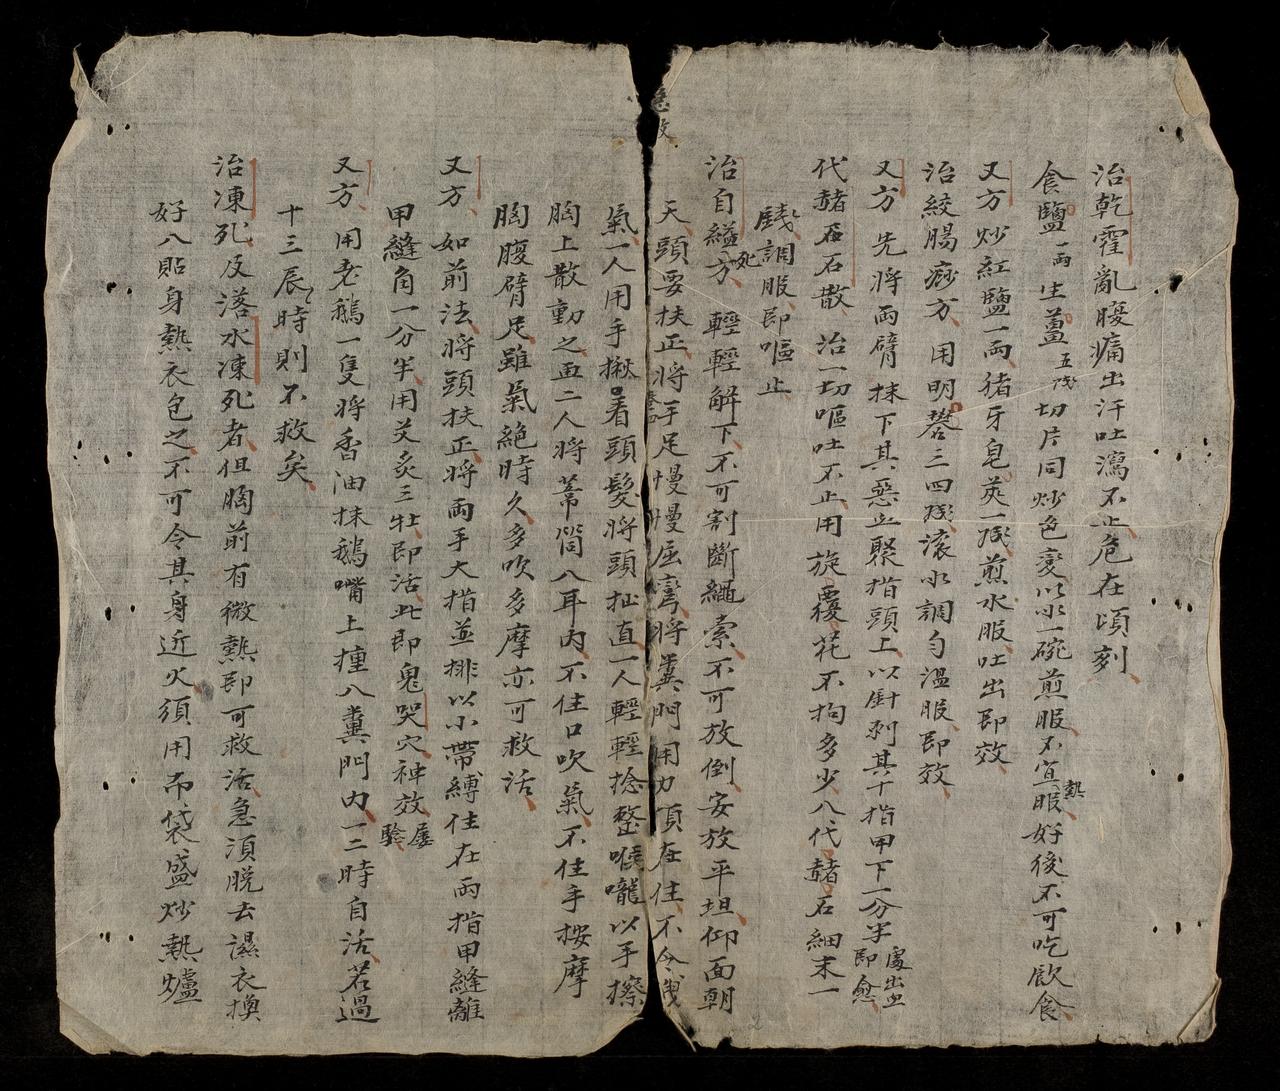 治乾霍亂腹痛出汗吐瀉不止危在頃刻
食鹽一兩生薑五戔切片同炒色變以水一碗煎服不宜熱服好後不可吃飲食
又方炒紅鹽一兩猪牙皂莢一戔煎水服吐出即效
治絞腸痧方用明礬三四戔滚水調勻溫服即效
又方先將兩臂抹下其惡血聚指頭上以針刺其十指甲下一分半處出血即愈
代赭石散治一切嘔吐不止用旋覆花不拘多少八代赭石細末一
戔調服即嘔止
治自縊死方輕輕解下不可割斷繩索不可放倒安放平坦仰面朝
天頭要扶正將手足慢慢屈彎將糞門用力頂在住不令洩
氣一人用手揪着頭髮將頭扯直一人輕輕捻整喉嚨以手擦
胸上散動之再二人將葦筒八耳內不住口吹氣不住手按摩
胸腹臂足雖氣絕時久多吹多摩亦可救活
又方如前法將頭扶正將兩手大指並排以小帶縛住在兩指甲縫離
甲縫角一分半用艾灸三壯即活此即鬼哭穴神效屢驗
又方用老鵝一隻將香油抹鵝嘴上撞八糞門內一二時自活若過
十三辰時則不救矣
治凍死及落水凍死者但胸前有微熱即可救活急須脫去濕衣換
好八貼身熱衣包之不可令其身近火須用布袋盛炒熱爐
急救